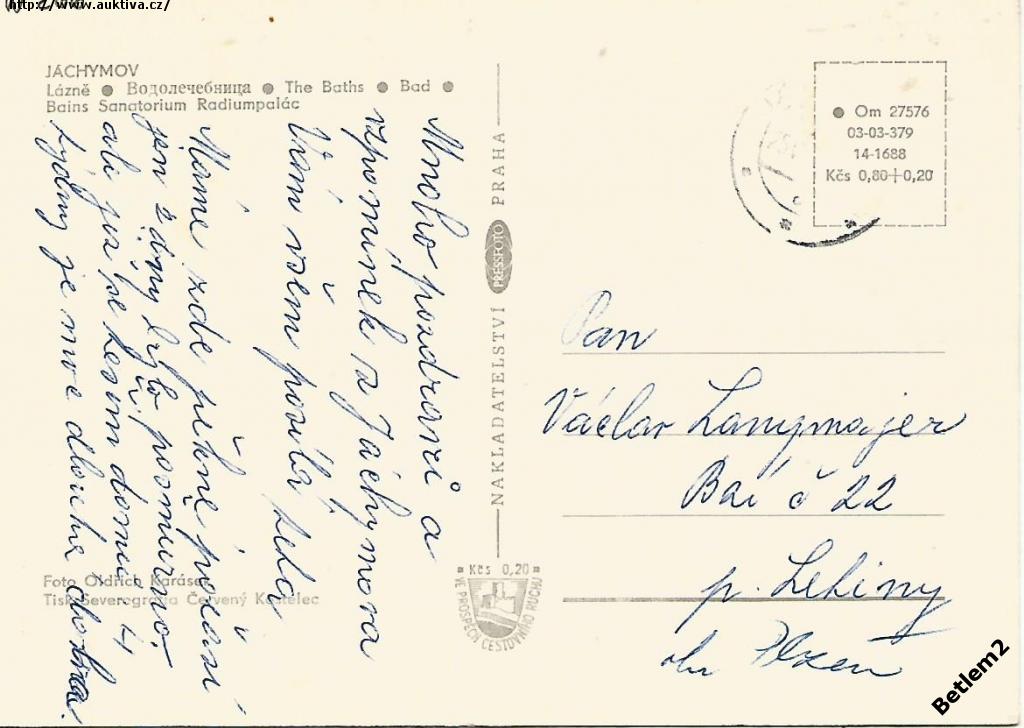 http://www.auktiva.cz/
JÁCHYMOV
Lázně ● Водолечебница ● The Baths ● Bad ●
Bains Sanatorium Radiumpalác
Mnoho pozdravů a
vzpomínek z Jáchymova
Vám všem posílá
Máme zde pěkné počasí
jen 2 dny bylo posmurno.
ale již se těším domů 4
týdny je moc dlouhá doba.
Foto Oldřich Karásek
Tisk Severografia Červený Kostelec
NAKLADATELSTVÍ PRESSFOTO PRAHA
Kčs 0,20
VE PROSPĚCH CESTOVNÍHO RUCHU
● Om 27576
03-03-379
14-1688
Kčs 0,80+0,20
Pan
Václav
č 22
p.
Plzeň
Betlem2